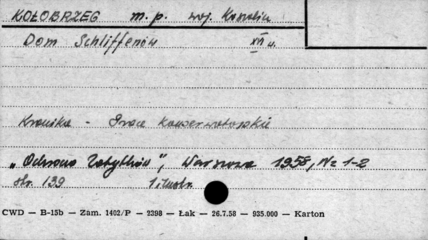 KOŁOBRZEG m. p. woj. Koszalin
Dom Schlieffenów XVI w.
Kronika - Prace konserwatorskie
„Ochrona Zabytków", Warszawa 1958, Nr 1-2
str. 139 1 ilustr.
CWD — B-15b — Zam. 1402/P — 2398 — Łak — 26.7.58 — 935.000 — Karton